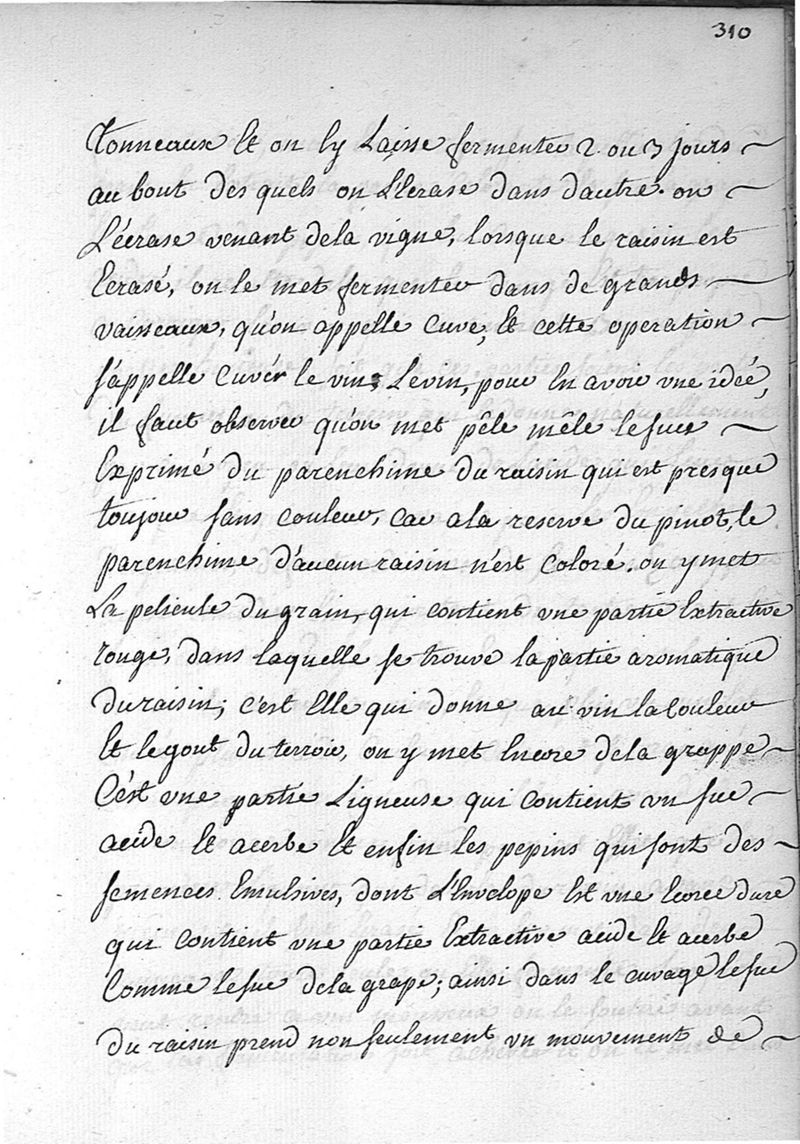 310
Tonneaux et on ly Laisse fermenter 2. ou 3 jours
au bout des quels on L'Ecrase dans d'autre. on
L'écrase venant dela vigne, lorsque le raisin est
Ecrasé, on le met fermenter dans de grands
vaisseaux, qu'on appelle Cuve, et cette operation
s'appelle Cuvér le vin; Levin, pour En avoir vne ideé,
il faut observer qu'on met pêle mêle lesuc
Exprimé du parenchime du raisin qui est presque
toujour sans couleur, car ala reserve du pinot, le
parenchime d'aucun raisin n'est coloré. on y met
La pelicule du grain, qui contient vne partie Extractive
rouge, dans laquelle se trouve la partie aromatique
du raisin; c'est Elle qui donne au vin la Couleur
Et legout du terroir, on y met Encore dela grappe
C'est vne partie Ligneuse qui contient vn suc
acide et acerbe Et enfin les pepins qui sont des
semences Emulsives, dont L'Envelope Est vne Ecorce dure
qui contient vne partie Extractive acide et acerbe
Comme lesuc dela grape; ainsi dans le cuvage lesuc
du raisin prend non seulement vn mouvement de